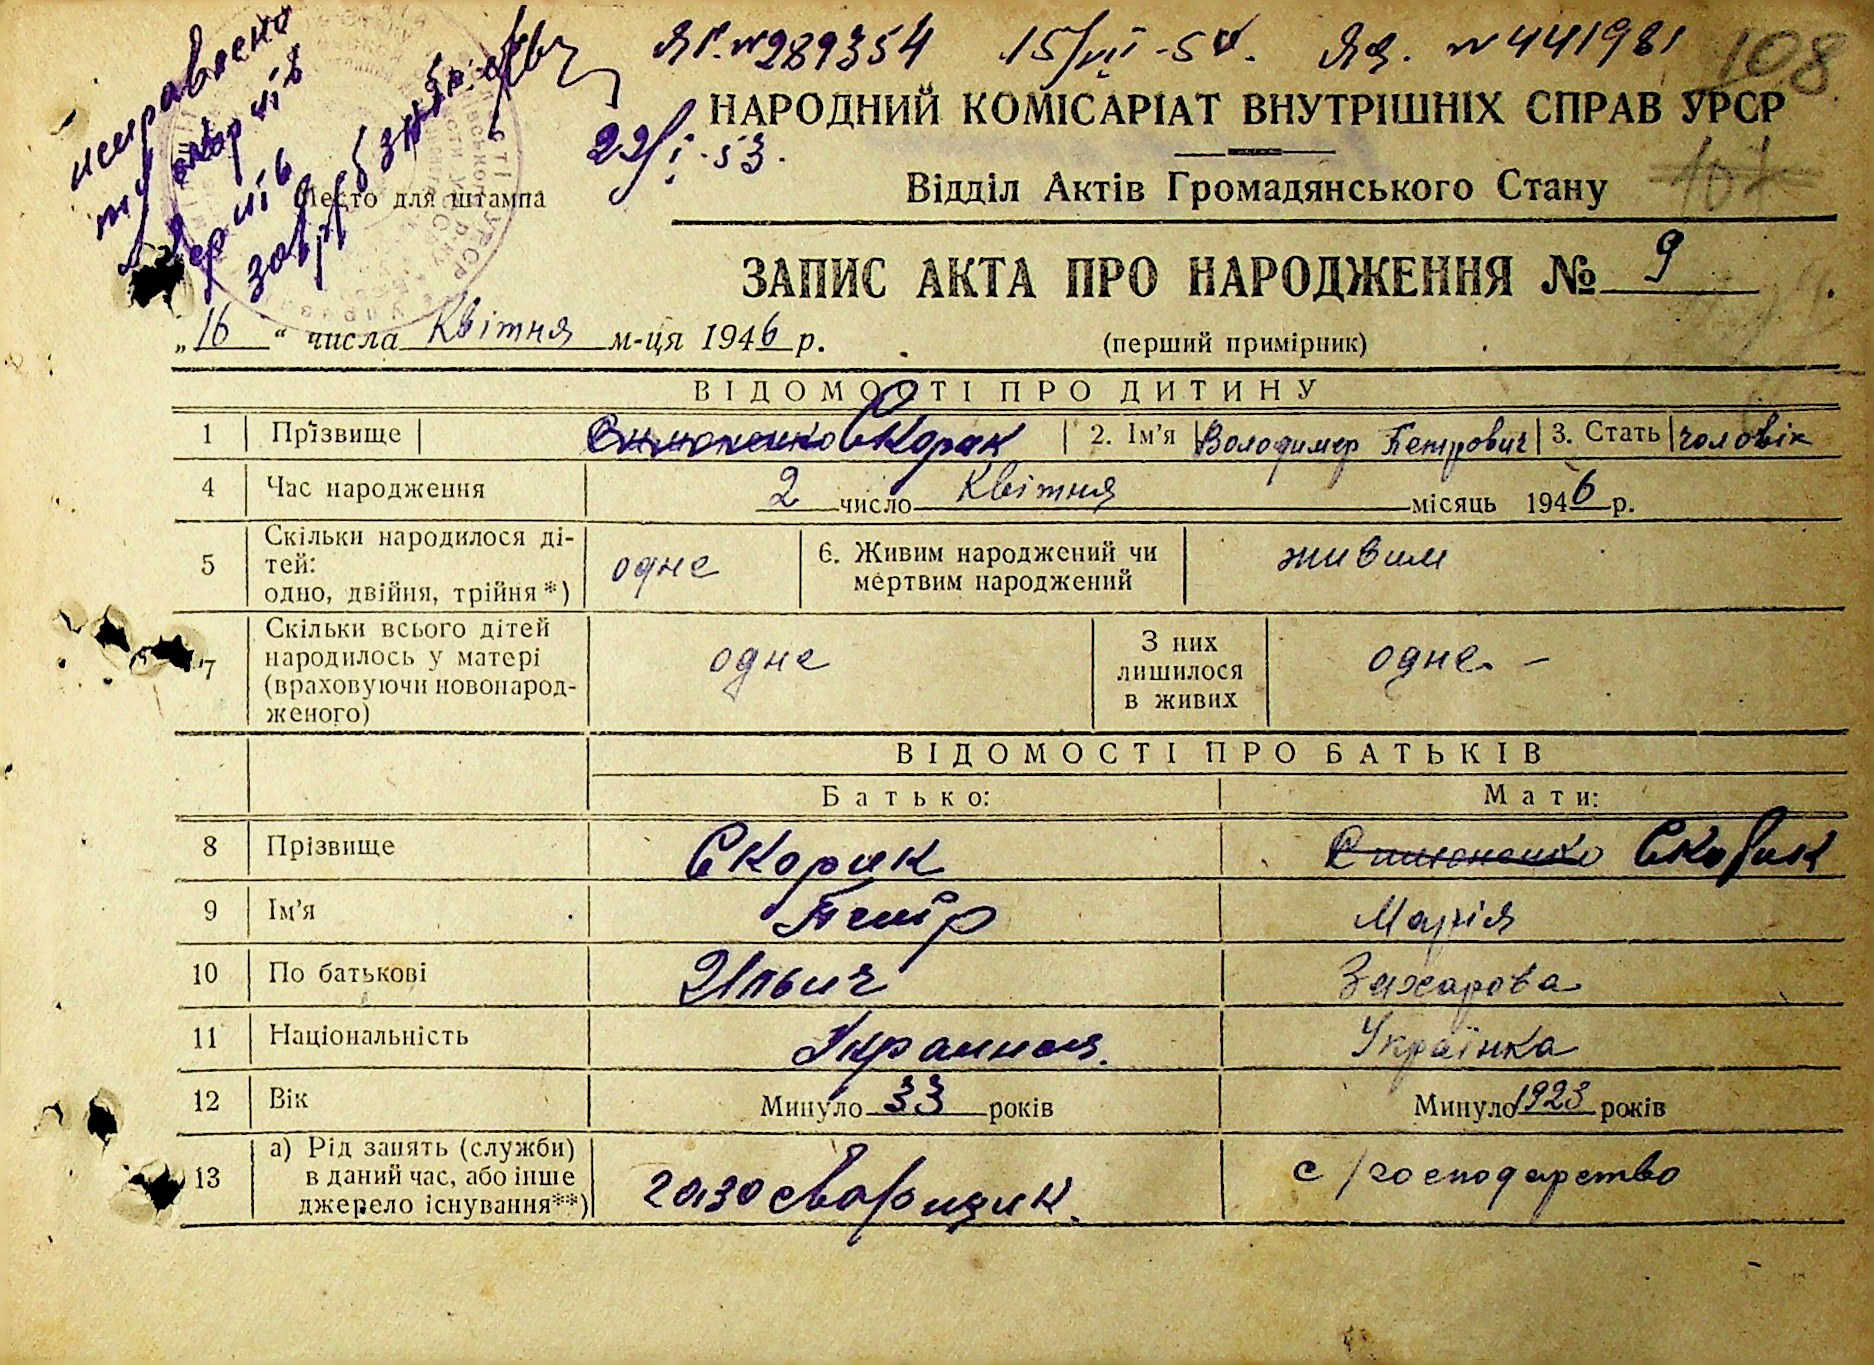 ЯГ. № 289354 15/VII-54. Яд. № 441981 108
22/I-53.
НАРОДНИЙ КОМІСАРІАТ ВНУТРІШНІХ СПРАВ УРСР
107
Место для штампа
Відділ Актів Громадянського Стану
ЗАПИС АКТА ПРО НАРОДЖЕННЯ № 9
„16“ числа Квітня м-ця 1946 р. (перший примірник)
ВІДОМОСТІ ПРО ДИТИНУ
1 Прізвище Симоненко Скорик 2. Ім'я Володимер Петрович 3. Стать чоловік
4 Час народження 2 число Квітня місяць 1946 р.
5 Скільки народилося дітей: одно, двійня, трійня*) одне 6. Живим народжений чи мертвим народжений живим
7 Скільки всього дітей народилось у матері (враховуючи новонародженого) одне З них лишилося в живих одне. –
ВІДОМОСТІ ПРО БАТЬКІВ
Батько: Мати:
8 Прізвище Скорик Симоненко Скорик
9 Ім'я Петр Марія
10 По батькові Ильич Захарова
11 Національність Українка
12 Вік Минуло 33 років Минуло 1923 років
13 а) Рід занять (служби) в даний час, або інше джерело існування**) газосварщик. с/господарство